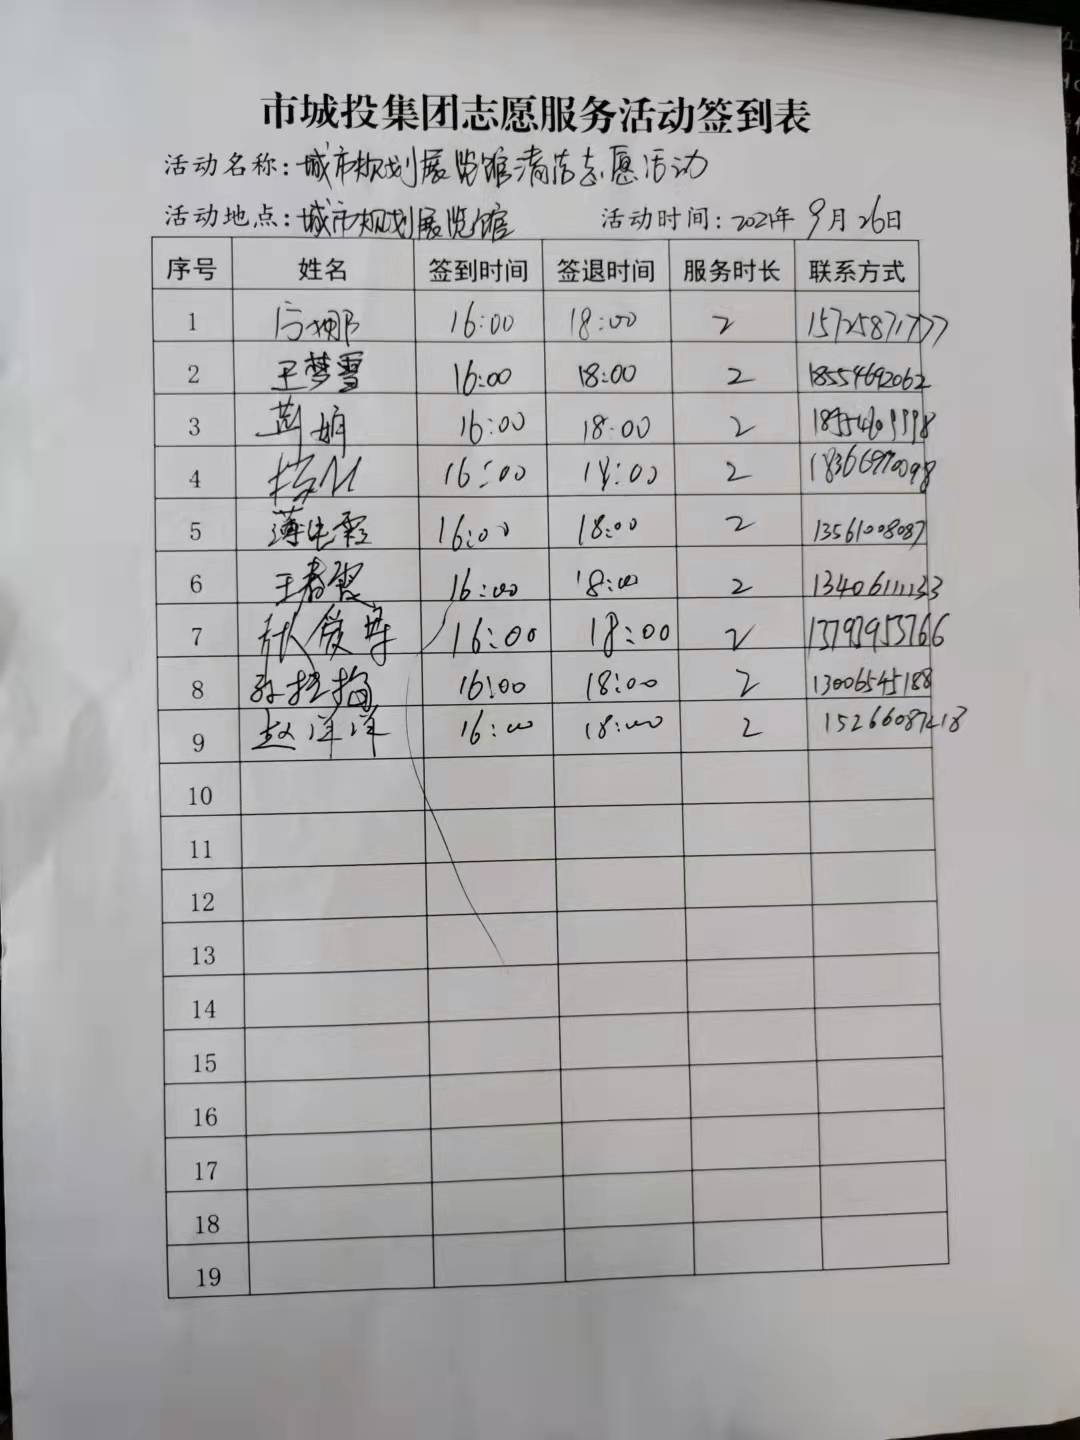 市城投集团志愿服务活动签到表
活动名称：城市规划展览馆清洁志愿活动
活动地点：城市规划展览馆 活动时间：2021年 9月26日
序号 姓名 签到时间 签退时间 服务时长 联系方式
1 16:00 18:00 2 15725871777
2 王梦雪 16:00 18:00 2 18554692062
3 16:00 18:00 2
4 16:00 18:00 2 18366970098
5 16:00 18:00 2 13561008087
6 王春霞 16:00 18:00 2 13406111133
7 16:00 18:00 2 13793953766
8 16:00 18:00 2 13006545188
9 赵洋洋 16:00 18:00 2 15266087418
10
11
12
13
14
15
16
17
18
19